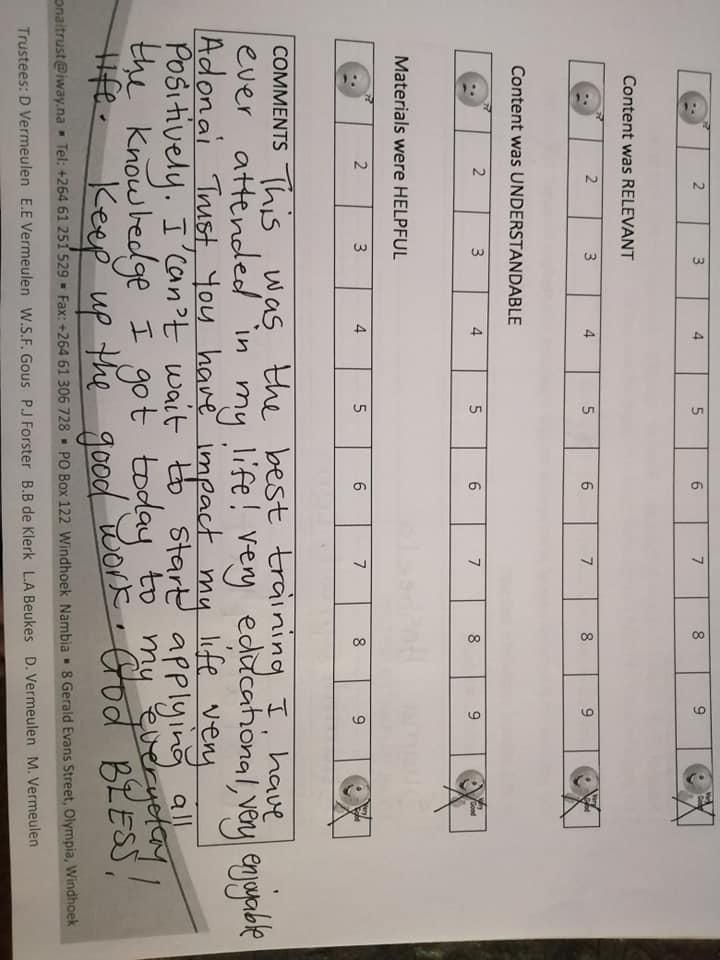 2 3 4 5 6 7 8 9 Very Good
Content was RELEVANT
2 3 4 5 6 7 8 9 Very Good
Content was UNDERSTANDABLE
2 3 4 5 6 7 8 9 Very Good
Materials were HELPFUL
2 3 4 5 6 7 8 9 Very Good
COMMENTS This was the best training I have
ever attended in my life! very educational, very enjoyable
Adonai Trust you have impact my life very
Positively. I can't wait to start applying all
the knowledge I got today to my everyday
life. Keep up the good work. God BLESS!
onaitrust@iway.na ▪ Tel: +264 61 251 529 ▪ Fax: +264 61 306 728 ▪ PO Box 122 Windhoek Nambia ▪ 8 Gerald Evans Street, Olympia, Windhoek
Trustees: D Vermeulen E.E Vermeulen W.S.F. Gous P.J Forster B.B de Klerk L.A Beukes D. Vermeulen M. Vermeulen